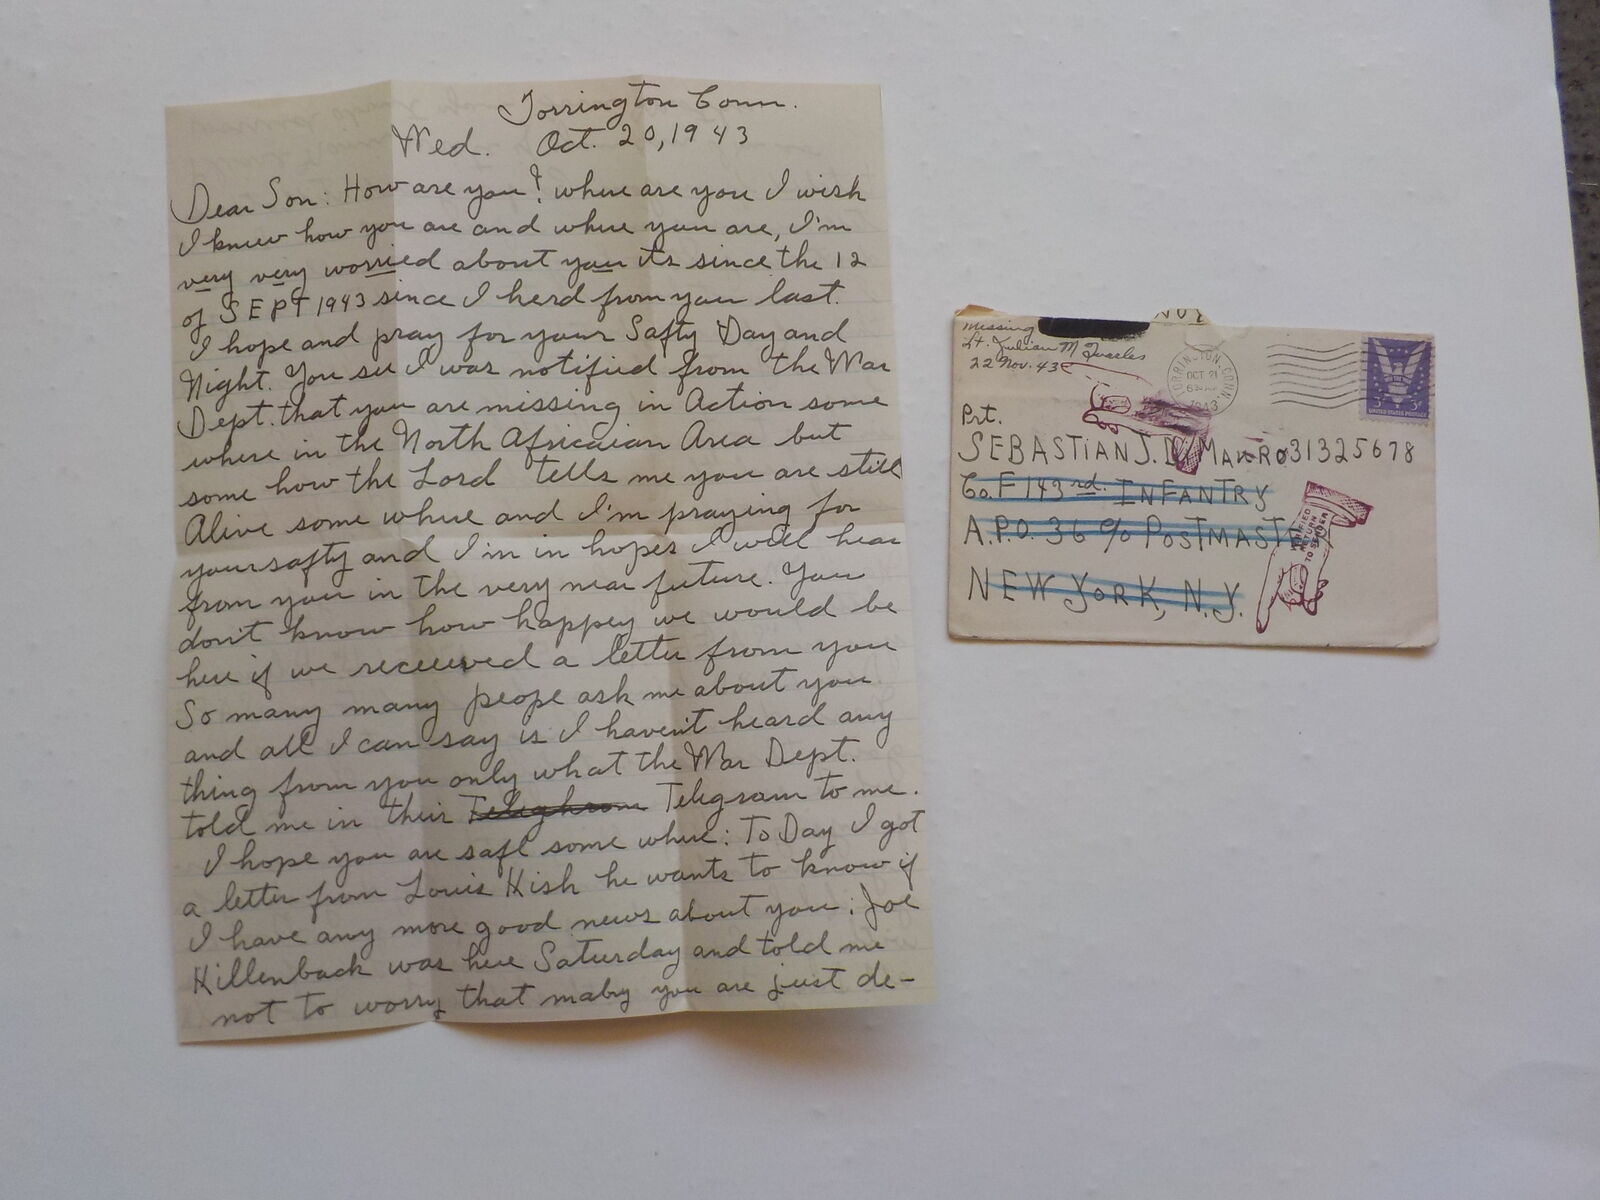 Torrington Conn.
Wed. Oct. 20, 1943
Dear Son: How are you? where are you I wish
I knew how you are and where you are, I'm
very very worried about you its since the 12
of SEPT 1943 since I herd from you last.
I hope and pray for your Safty Day and
Night. You see I was notified from the War
Dept. that you are missing in Action some
where in the North Africaian Area but
some how the Lord tells me you are still
Alive some where and I'm praying for
your safty and I'm in hopes I will hear
from you in the very near future. You
don't know how happey we would be
here if we receieved a letter from you
So many many peope ask me about you
and all I can say is I haven't heard any
thing from you only what the War Dept.
told me in their Telegram to me.
I hope you are safe some where: To Day I got
a letter from Louis Kish he wants to know if
I have any more good news about you: Joe
Killenback was here Saturday and told me
not to worry that maby you are just de-
Missing
Lt. Julian M
22 Nov. 43
TORRINGTON, CONN.
OCT 21
1943
3¢ 3¢
UNITED STATES POSTAGE
Pvt.
SEBASTIAN J. 31325678
Co. F 143rd. INFANTRY
A.P.O. 36 c/o POSTMASTER
NEW YORK, N.Y.
RETURN
TO SENDER